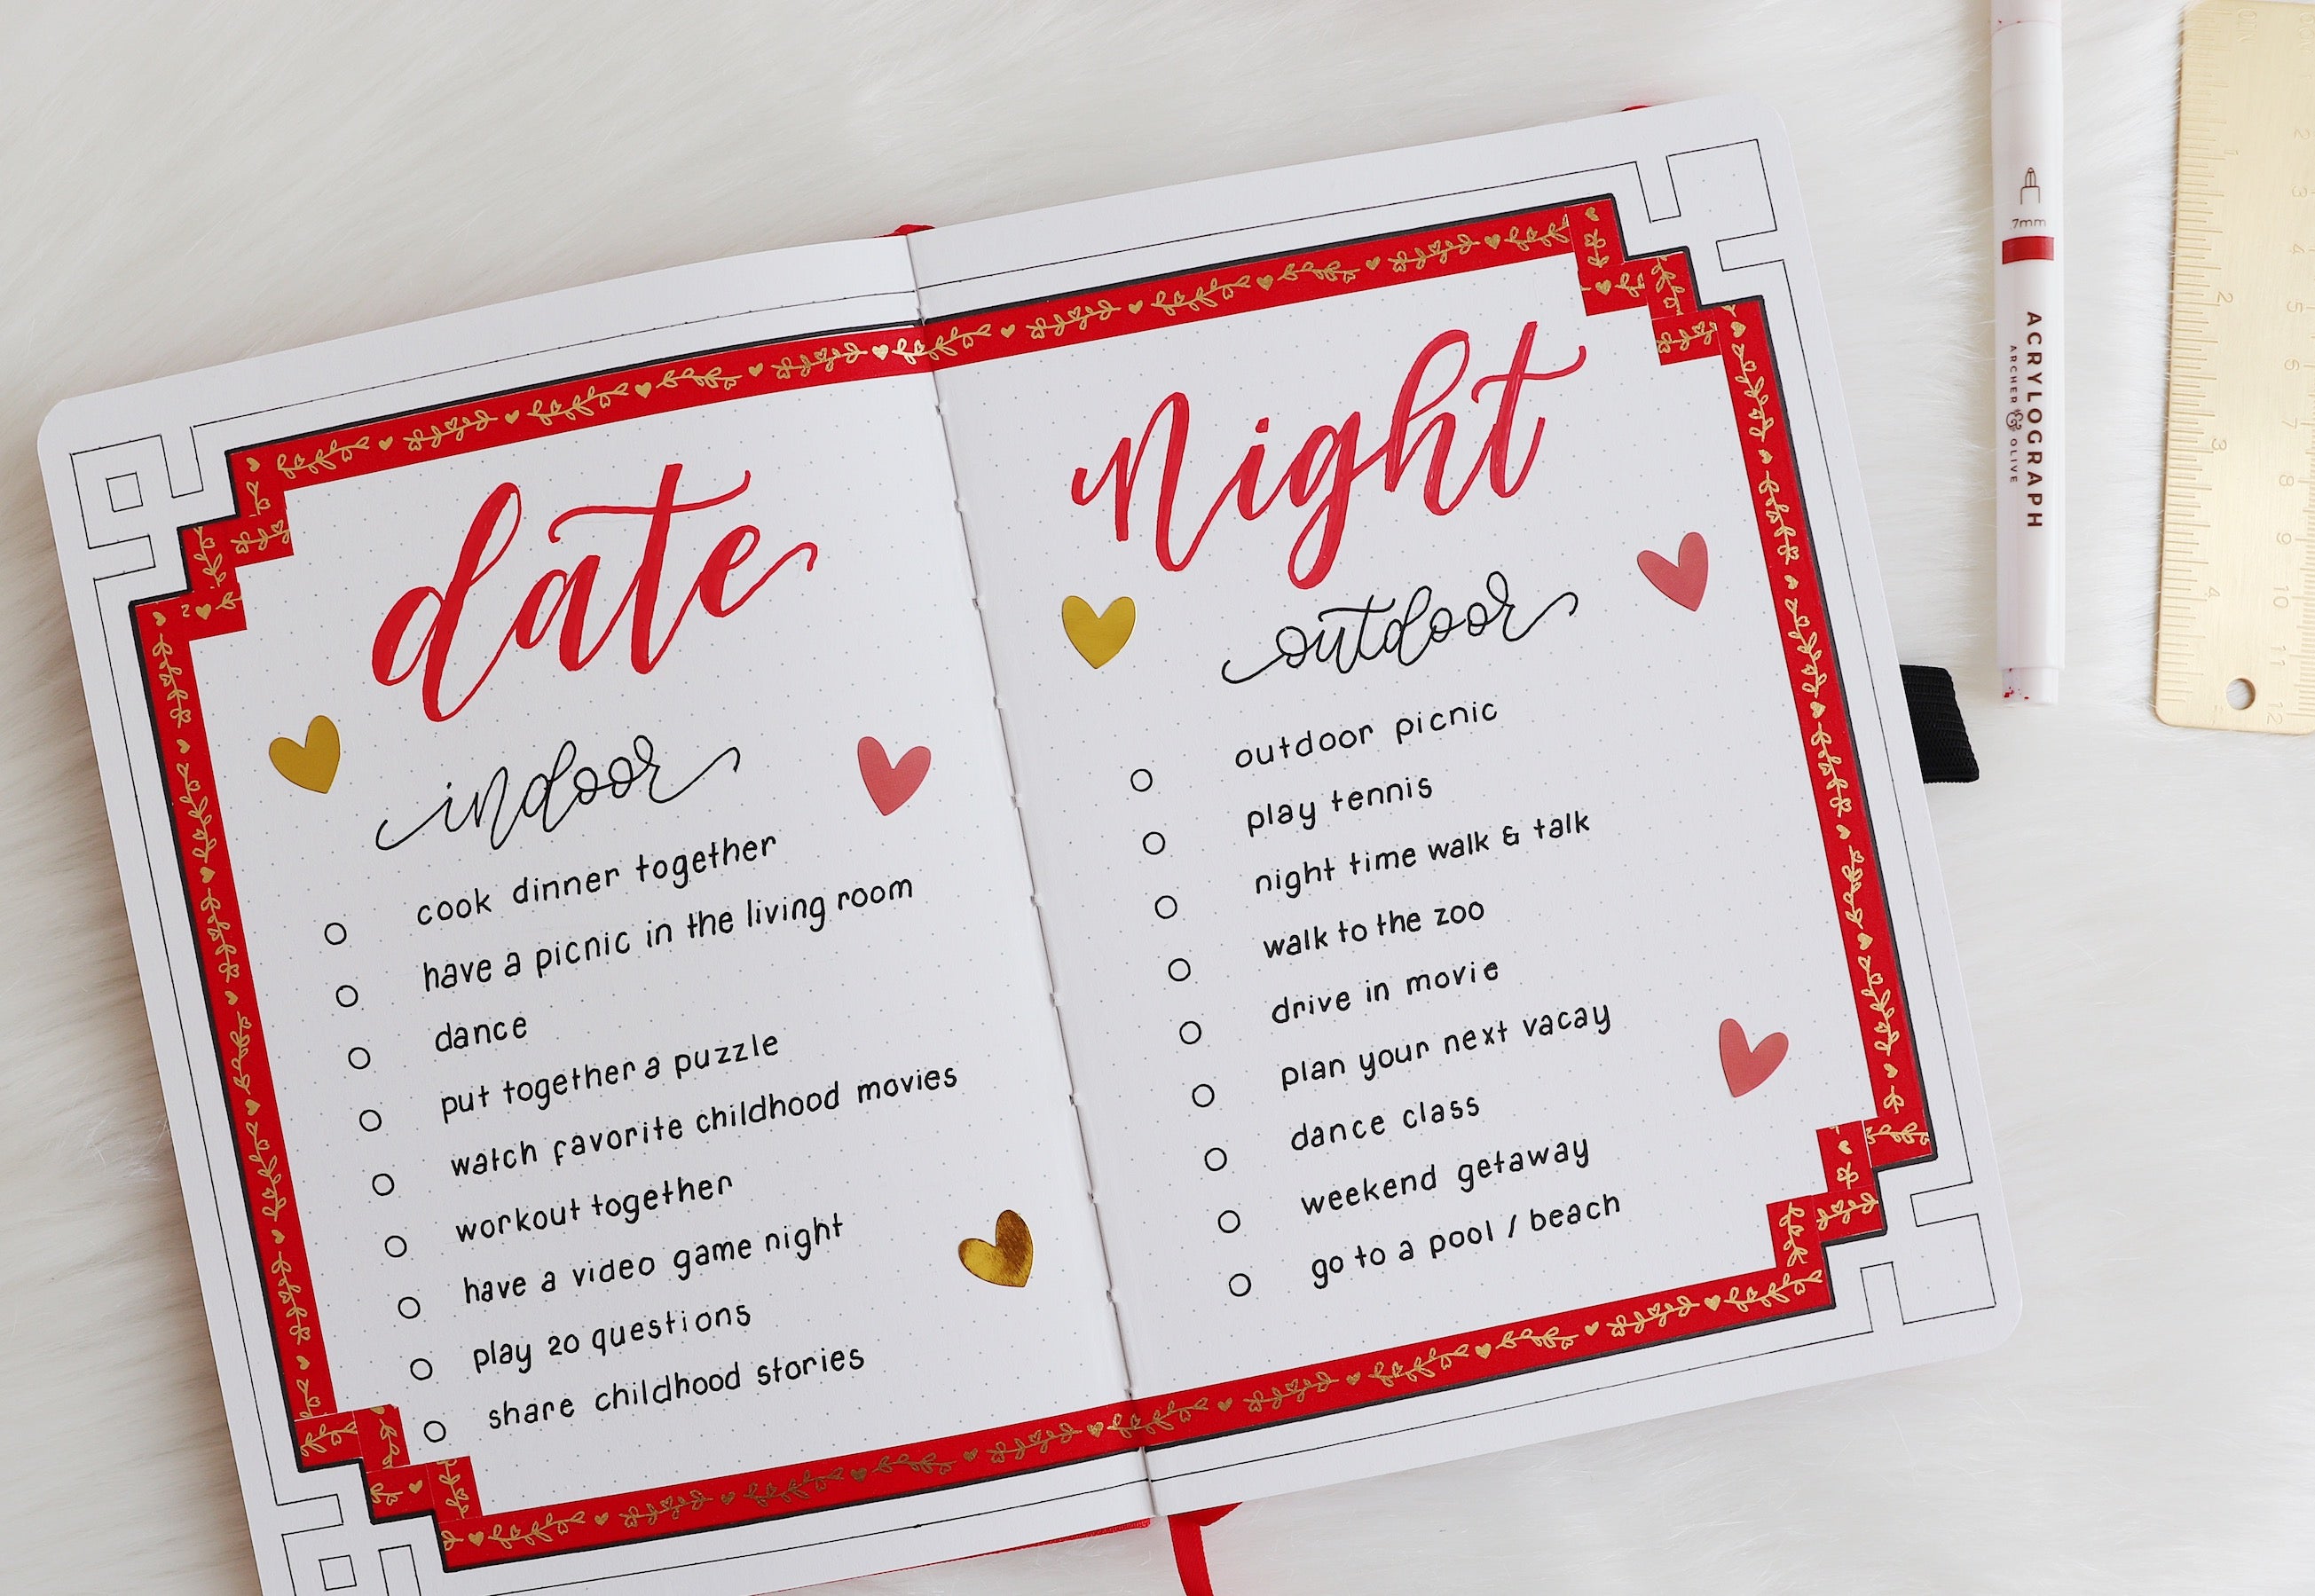 date
indoor
cook dinner together
have a picnic in the living room
dance
put together a puzzle
watch favorite childhood movies
workout together
have a video game night
play 20 questions
share childhood stories
Night
outdoor
outdoor picnic
play tennis
night time walk & talk
walk to the zoo
drive in movie
plan your next vacay
dance class
weekend getaway
go to a pool / beach
7mm
ACRYLOGRAPH
ARCHER & OLIVE
1
2
3
4
2
3
4
5
6
7
8
9
10
11
12